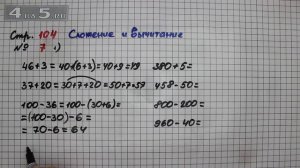 4 5.ru
Стр. 104 Сложение и вычитание
№ 7 1)
46+3=40+(6+3)=40+9=49 380+5=
37+20=30+7+20=50+7=57 458-50=
100-36=100-(30+6)= 800-200=
=(100-30)-6= 960-40=
=70-6=64